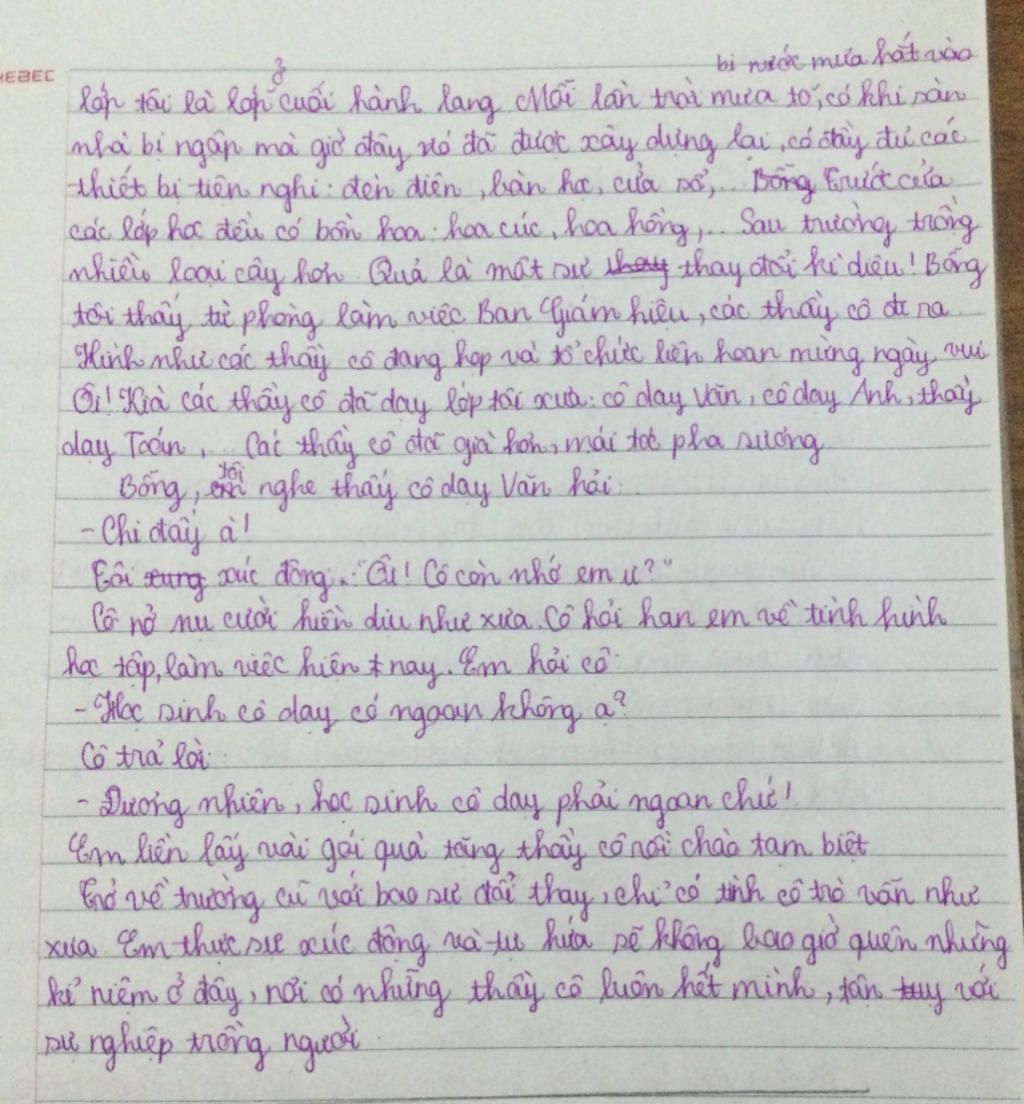 bị nước mưa hắt vào
HEBEC
ở
lớp tôi là lớp cuối hành lang Mỗi lần trời mưa to, có khi sàn
nhà bị ngập mà giờ đây nó đã được xây dựng lại, có đầy đủ các
thiết bị tiện nghi: đèn điện, bàn học, cửa sổ,... Bỗng Trước cửa
các lớp học đều có bồn hoa: hoa cúc, hoa hồng,... Sau trường trồng
nhiều loại cây hơn. Quả là một sự thay thay đổi kì diệu! Bỗng
tôi thấy từ phòng làm việc Ban Giám hiệu, các thầy cô đi ra.
Hình như các thầy cô đang họp và tổ chức liên hoan mừng ngày vui
Ôi! Kìa các thầy cô đã dạy lớp tôi xưa: cô dạy Văn, cô dạy Anh, thầy
dạy Toán,... Các thầy cô đã già hơn, mái tóc pha sương
tôi
Bỗng, em nghe thấy cô dạy Văn hỏi:
- Chi đấy à!
Tôi xung xúc động. "Ôi! Cô còn nhớ em ư?"
Cô nở nụ cười hiền dịu như xưa. Cô hỏi han em về tình hình
học tập, làm việc hiện nay. Em hỏi cô:
- Học sinh cô dạy có ngoan không ạ?
Cô trả lời:
- Đương nhiên, học sinh cô dạy phải ngoan chứ!
Em liền lấy vài gói quà tặng thầy cô rồi chào tạm biệt
Trở về trường cũ với bao sự đổi thay, chỉ có tình cô trò vẫn như
xưa. Em thực sự xúc động và tự hứa sẽ không bao giờ quên những
kỉ niệm ở đây, nơi có những thầy cô luôn hết mình, tận tuy với
sự nghiệp trồng người.